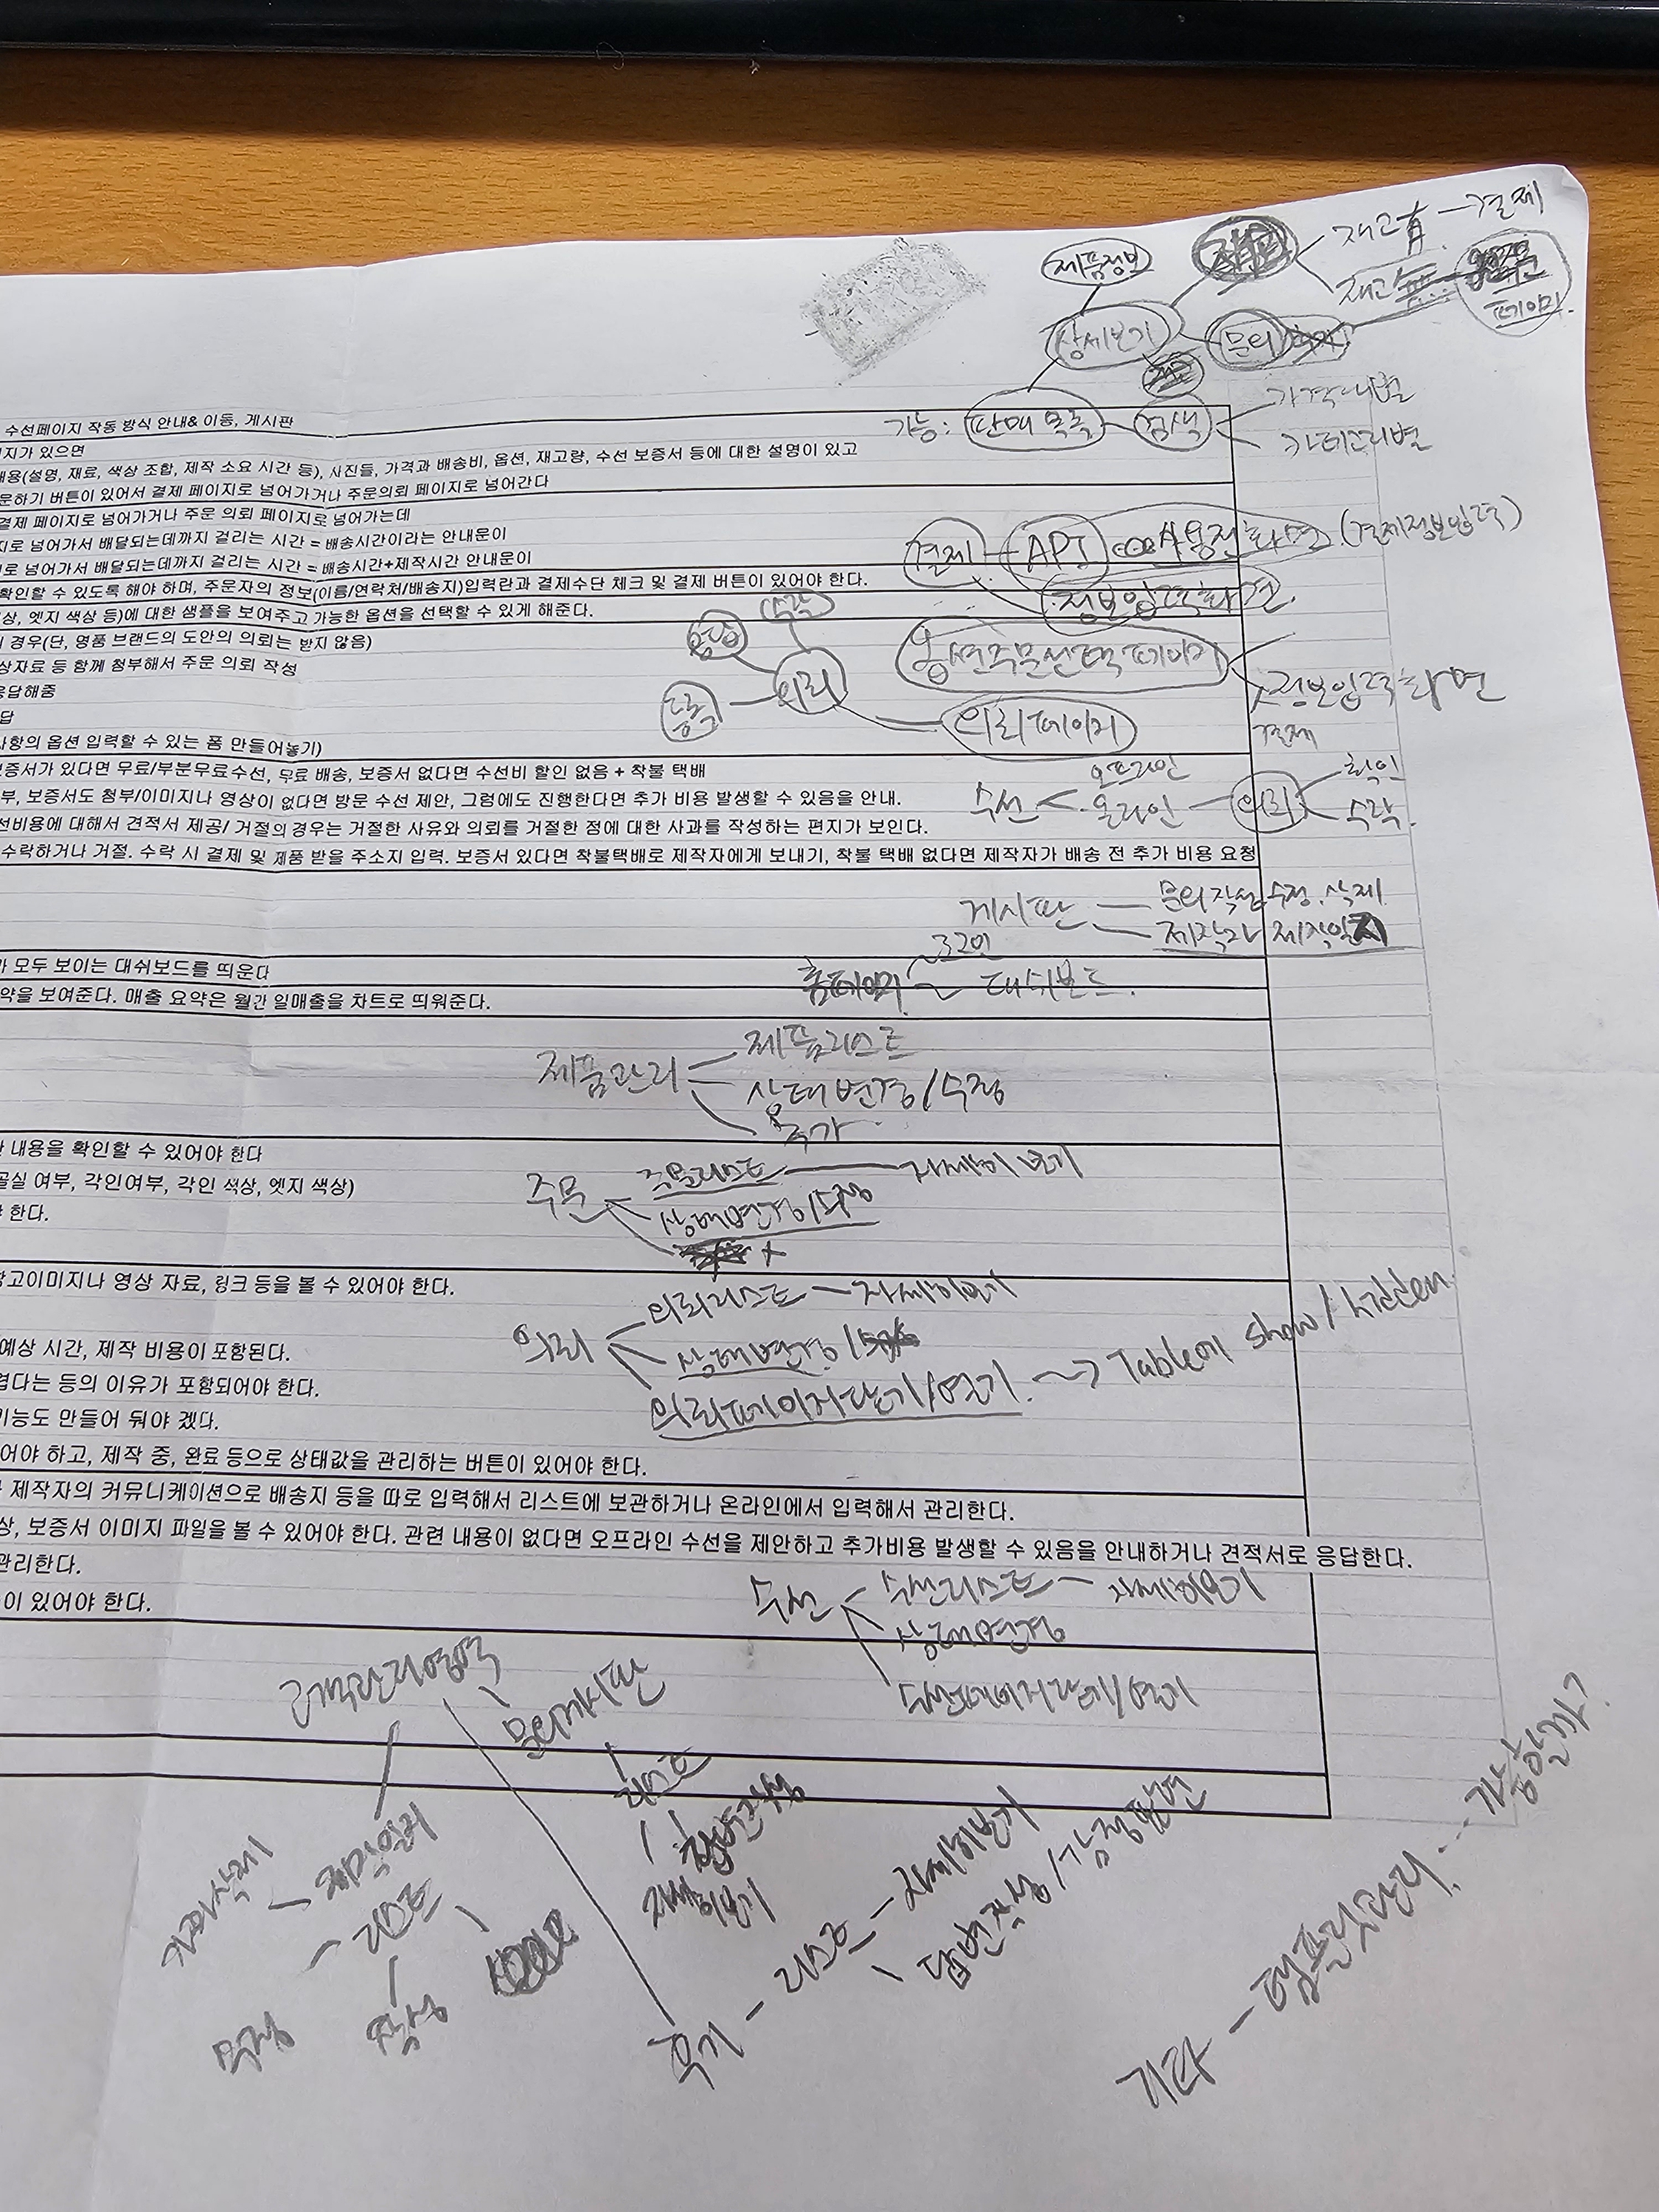 제품정보
재고有 - 결제
재고無
페이지
상세보기
문의
기능: 판매 목록 - 검색
가격대별
카테고리별
수선페이지 작동 방식 안내& 이동, 게시판
지가 있으면
내용(설명, 재료, 색상 조합, 제작 소요 시간 등), 사진들, 가격과 배송비, 옵션, 재고량, 수선 보증서 등에 대한 설명이 있고
문하기 버튼이 있어서 결제 페이지로 넘어가거나 주문의뢰 페이지로 넘어간다
결제 페이지로 넘어가거나 주문 의뢰 페이지로 넘어가는데
지로 넘어가서 배달되는데까지 걸리는 시간 = 배송시간이라는 안내문이
로 넘어가서 배달되는데까지 걸리는 시간 = 배송시간+제작시간 안내문이
확인할 수 있도록 해야 하며, 주문자의 정보(이름/연락처/배송지)입력란과 결제수단 체크 및 결제 버튼이 있어야 한다.
상, 엣지 색상 등)에 대한 샘플을 보여주고 가능한 옵션을 선택할 수 있게 해준다.
경우(단, 명품 브랜드의 도안의 의뢰는 받지 않음)
상자료 등 함께 첨부해서 주문 의뢰 작성
응답해줌
답
사항의 옵션 입력할 수 있는 폼 만들어놓기)
결제 - API 사용전 화면 (결제정보입력)
정보입력화면
수락
응답
의뢰
등록
옵션주문선택 페이지
정보입력화면
결제
의뢰페이지
보증서가 있다면 무료/부분무료수선, 무료 배송, 보증서 없다면 수선비 할인 없음 + 착불 택배
부, 보증서도 첨부/이미지나 영상이 없다면 방문 수선 제안, 그럼에도 진행한다면 추가 비용 발생할 수 있음을 안내.
선비용에 대해서 견적서 제공/ 거절의 경우는 거절한 사유와 의뢰를 거절한 점에 대한 사과를 작성하는 편지가 보인다.
수락하거나 거절. 수락 시 결제 및 제품 받을 주소지 입력. 보증서 있다면 착불택배로 제작자에게 보내기, 착불 택배 없다면 제작자가 배송 전 추가 비용 요청
오프라인
수선 < 온라인 - 의뢰
확인
수락.
게시판
문의 작성 수정. 삭제
제작자 제작일지
모두 보이는 대쉬보드를 띄운다
약을 보여준다. 매출 요약은 월간 일매출을 차트로 띄워준다.
홈페이지
로그인
대쉬보드.
제품관리
제품리스트
상태 변경/수정
추가
내용을 확인할 수 있어야 한다
골실 여부, 각인여부, 각인 색상, 엣지 색상)
한다.
주문
주문리스트 - 자세히 보기
상태변경/수정
참고이미지나 영상 자료, 링크 등을 볼 수 있어야 한다.
예상 시간, 제작 비용이 포함된다.
렵다는 등의 이유가 포함되어야 한다.
기능도 만들어 둬야 겠다.
어야 하고, 제작 중, 완료 등으로 상태값을 관리하는 버튼이 있어야 한다.
의뢰
의뢰리스트 - 자세히보기
상태변경/
의뢰페이지닫기/열기. -> Table에 show/hidden
제작자의 커뮤니케이션으로 배송지 등을 따로 입력해서 리스트에 보관하거나 온라인에서 입력해서 관리한다.
상, 보증서 이미지 파일을 볼 수 있어야 한다. 관련 내용이 없다면 오프라인 수선을 제안하고 추가비용 발생할 수 있음을 안내하거나 견적서로 응답한다.
관리한다.
이 있어야 한다.
수선
수선리스트 - 자세히보기
상태변경
수선페이지닫기/열기
고객관리영역
문의게시판
리스트
답변작성
자세히보기
제작일지
리스트
작성
수정
후기 - 리스트 - 자세히보기
답변작성/감정표현
기타 - 템플릿관리... 가능할까?